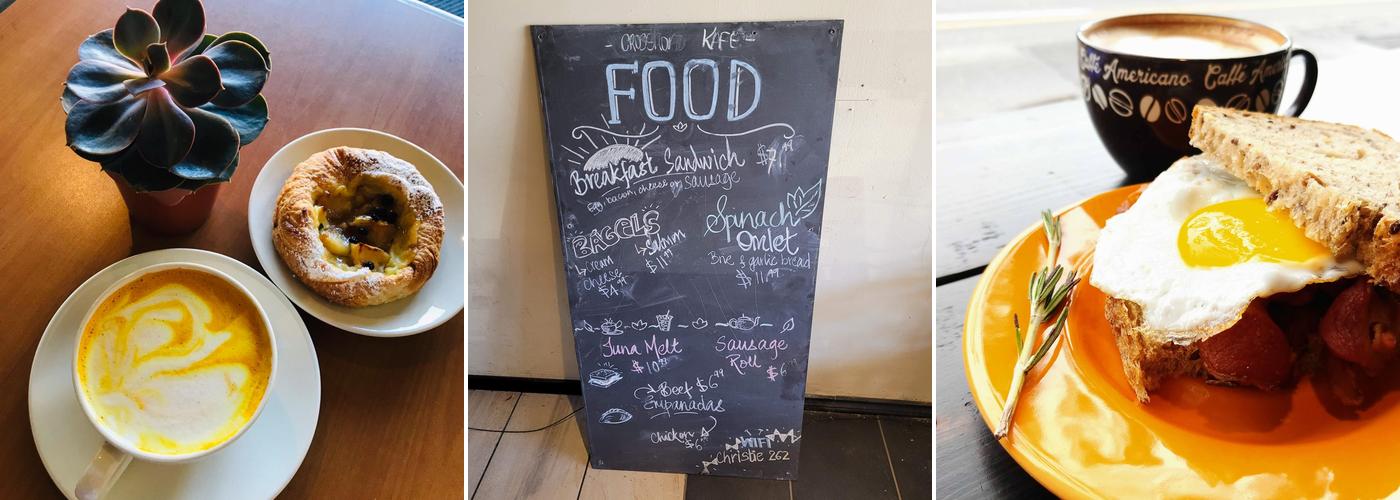 KAFE -
FOOD
Breakfast Sandwich $7.49
Egg, bacon, cheese or sausage
BAGELS
↳ Cream cheese $4.99
↳ Salmon $11.99
Spinach Omlet
Brie & garlic bread
$11.99
Tuna Melt
$10
Sausage Roll
$6
Beef $6.99
Empanadas
Chicken
$6
WIFI
Christie 262
Caffè Americano Caffè